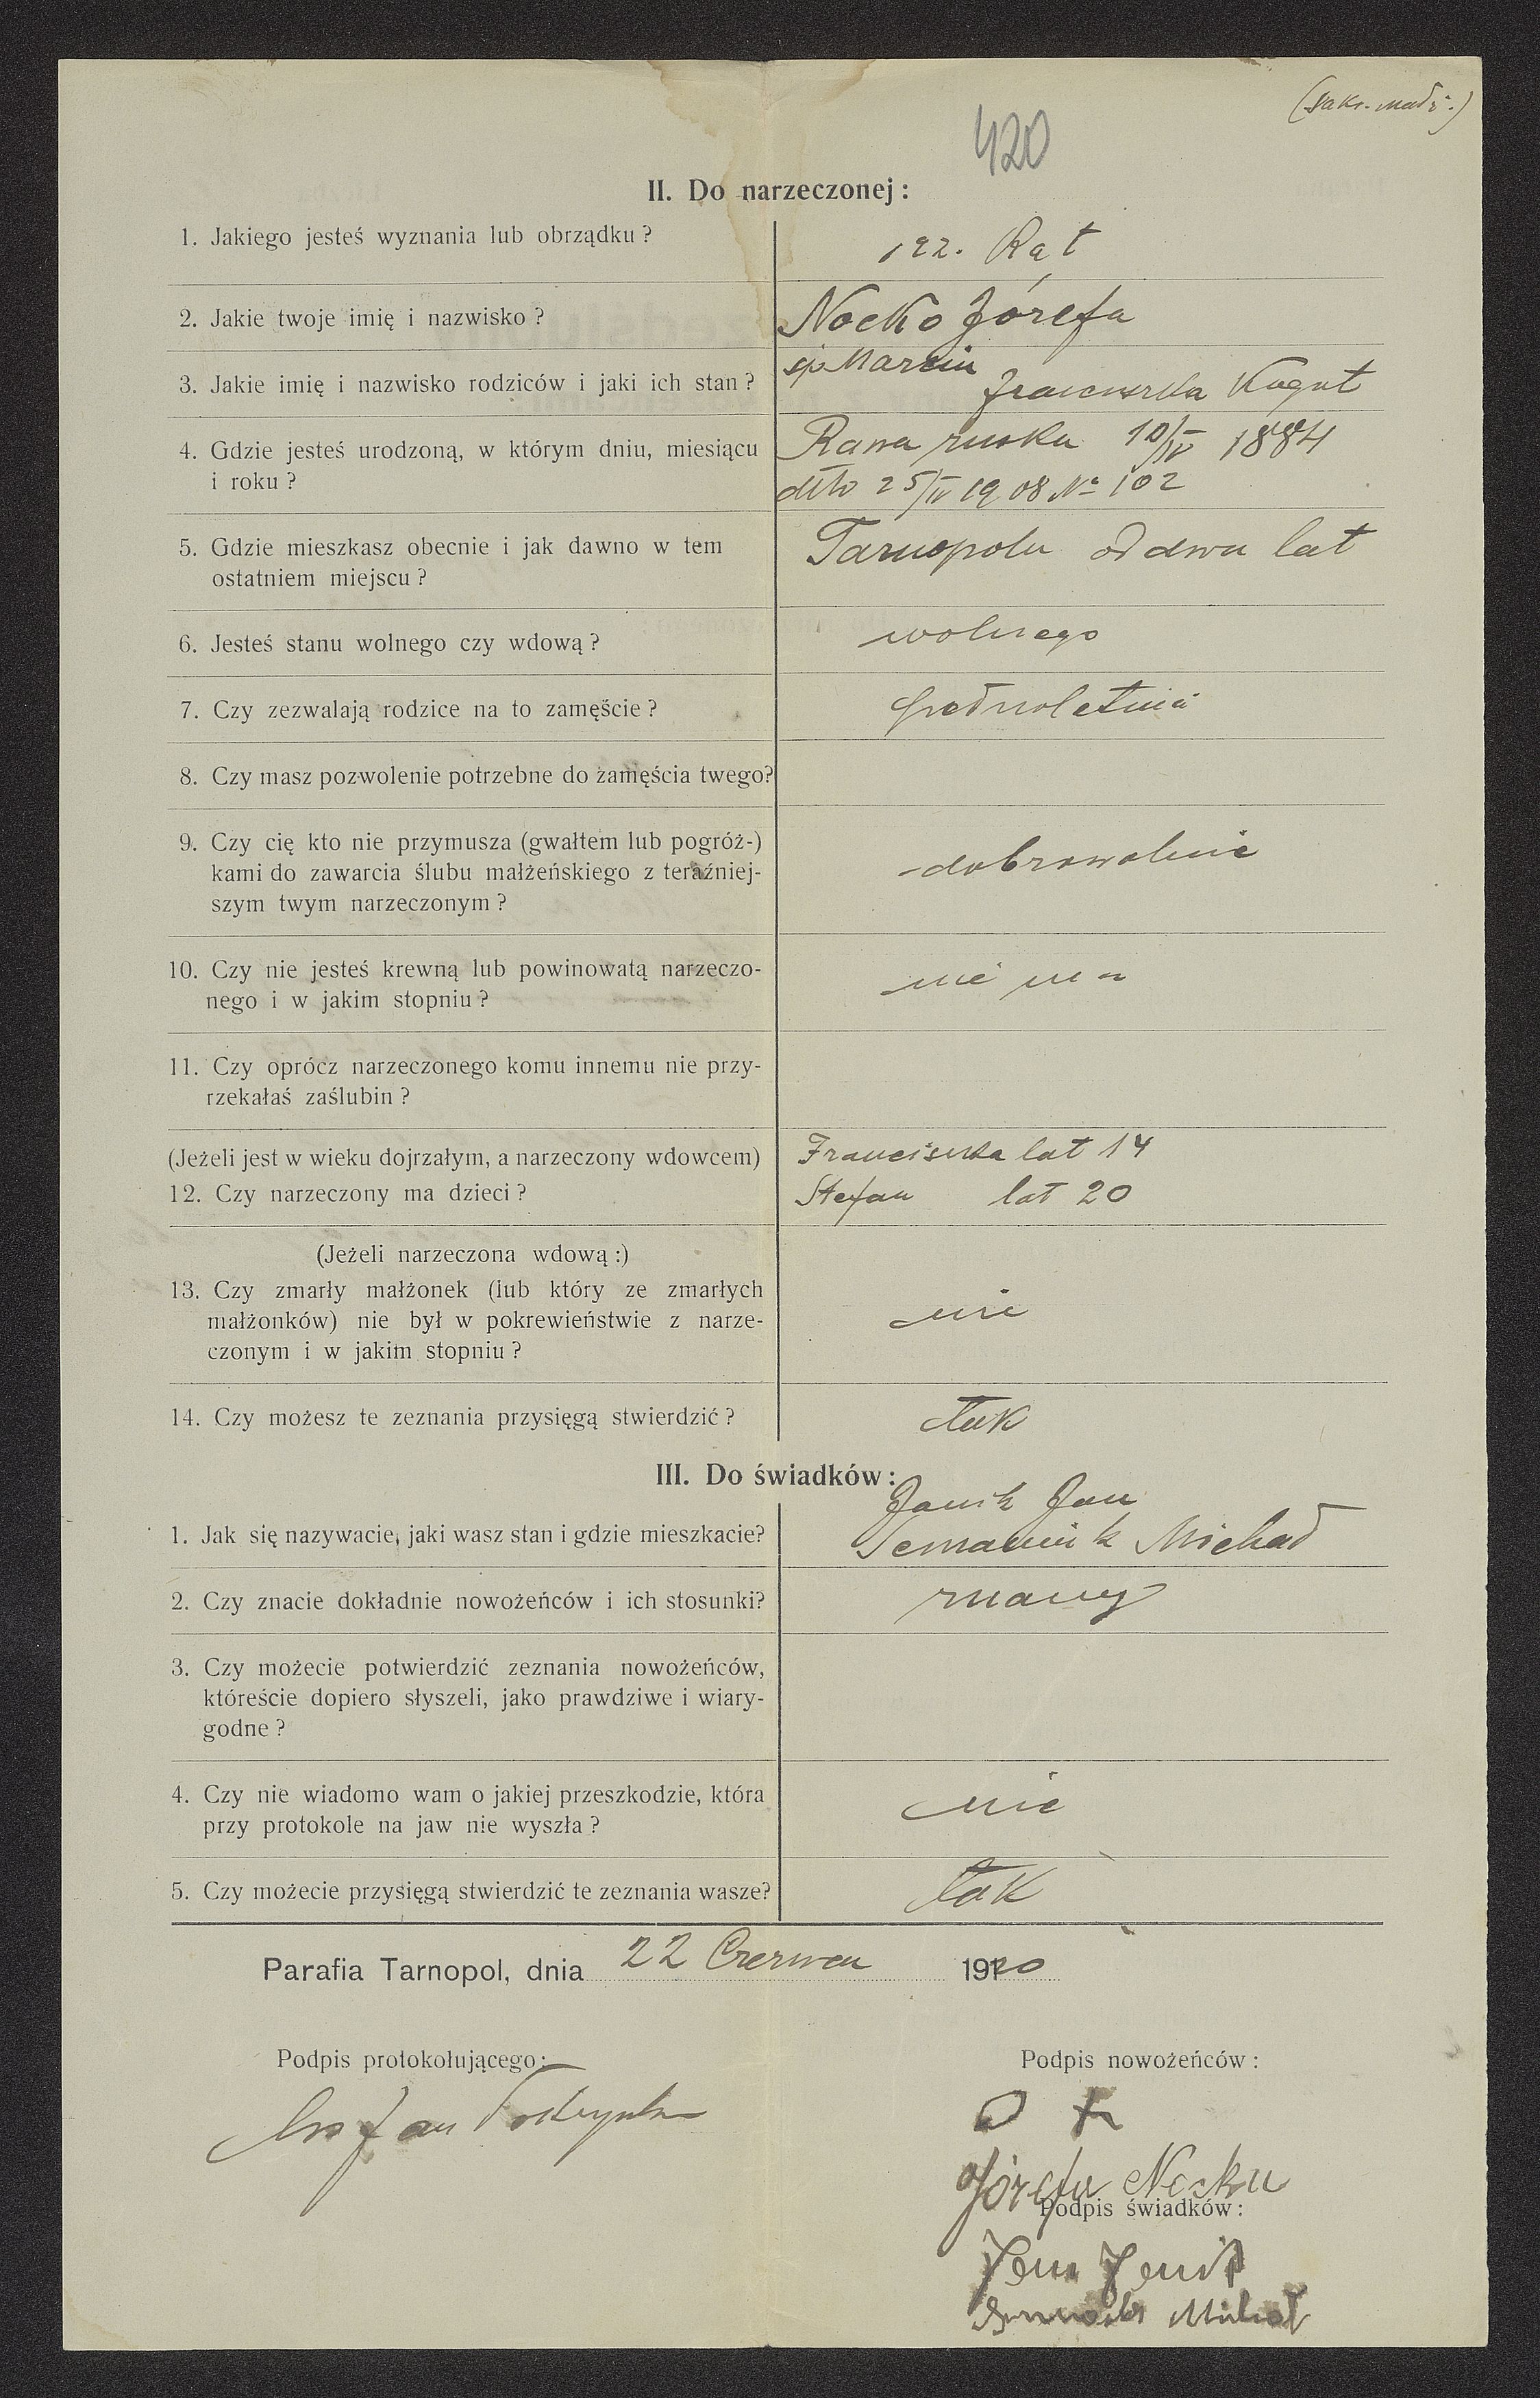 420
II. Do narzeczonej:
1. Jakiego jesteś wyznania lub obrządku?
rzz. Kat
2. Jakie twoje imię i nazwisko?
Nocko Józefa
3. Jakie imię i nazwisko rodziców i jaki ich stan?
śp Marcin
Franciszka Kogut
4. Gdzie jesteś urodzoną, w którym dniu, miesiącu
i roku?
Rawa ruska 10/IV 1884
dtto 25/IV 1908 № 102
5. Gdzie mieszkasz obecnie i jak dawno w tem
ostatniem miejscu?
Tarnopolu od dwu lat
6. Jesteś stanu wolnego czy wdową?
wolnego
7. Czy zezwalają rodzice na to zamęście?
pełnoletnia
8. Czy masz pozwolenie potrzebne do zamęścia twego?
9. Czy cię kto nie przymusza (gwałtem lub pogróż-)
kami do zawarcia ślubu małżeńskiego z teraźniej-
szym twym narzeczonym?
dobrowolnie
10. Czy nie jesteś krewną lub powinowatą narzeczo-
nego i w jakim stopniu?
nie ma
11. Czy oprócz narzeczonego komu innemu nie przy-
rzekałaś zaślubin?
(Jeżeli jest w wieku dojrzałym, a narzeczony wdowcem)
Franciszka lat 14
12. Czy narzeczony ma dzieci?
Stefan lat 20
(Jeżeli narzeczona wdową:)
13. Czy zmarły małżonek (lub który ze zmarłych
małżonków) nie był w pokrewieństwie z narze-
czonym i w jakim stopniu?
nie
14. Czy możesz te zeznania przysięgą stwierdzić?
tak
III. Do świadków:
Janik Jan
1. Jak się nazywacie, jaki wasz stan i gdzie mieszkacie?
Semaniuk Michał
2. Czy znacie dokładnie nowożeńców i ich stosunki?
znamy
3. Czy możecie potwierdzić zeznania nowożeńców,
któreście dopiero słyszeli, jako prawdziwe i wiary-
godne?
4. Czy nie wiadomo wam o jakiej przeszkodzie, która
przy protokole na jaw nie wyszła?
nie
5. Czy możecie przysięgą stwierdzić te zeznania wasze?
tak
Parafia Tarnopol, dnia 22 Czerwca 1920
Podpis protokołującego:
Podpis nowożeńców:
Józefa Nocku
Podpis świadków:
Jan Janik
Michał